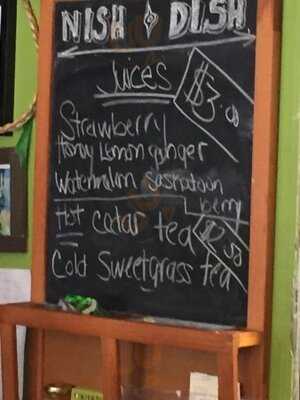 NISH DISH
Juices
$3.00
Strawberry
Honey Lemon ginger
Watermelon Saskatoon
berry
Hot cedar tea
$2.50
Cold Sweetgrass tea